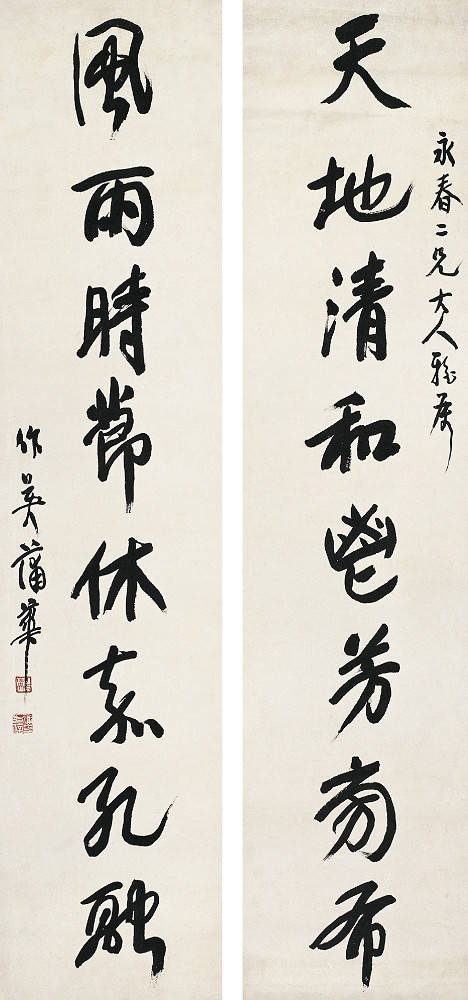 天地清和鬯芳旁布
永春二兄大人雅屬
風雨時節休嘉孔融
作英蒲華